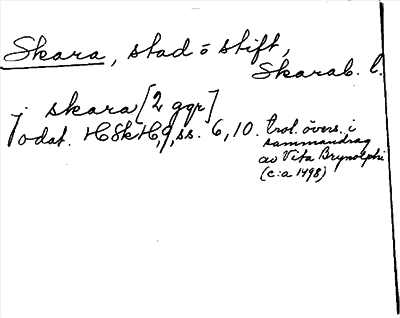 Skara, stad o stift,
Skarab. l.
j skara [2 ggr]
odat. HSkH, 9, ss. 6, 10. trol. övers. i
sammandrag
av Vita Brynolphi
(c:a 1498)